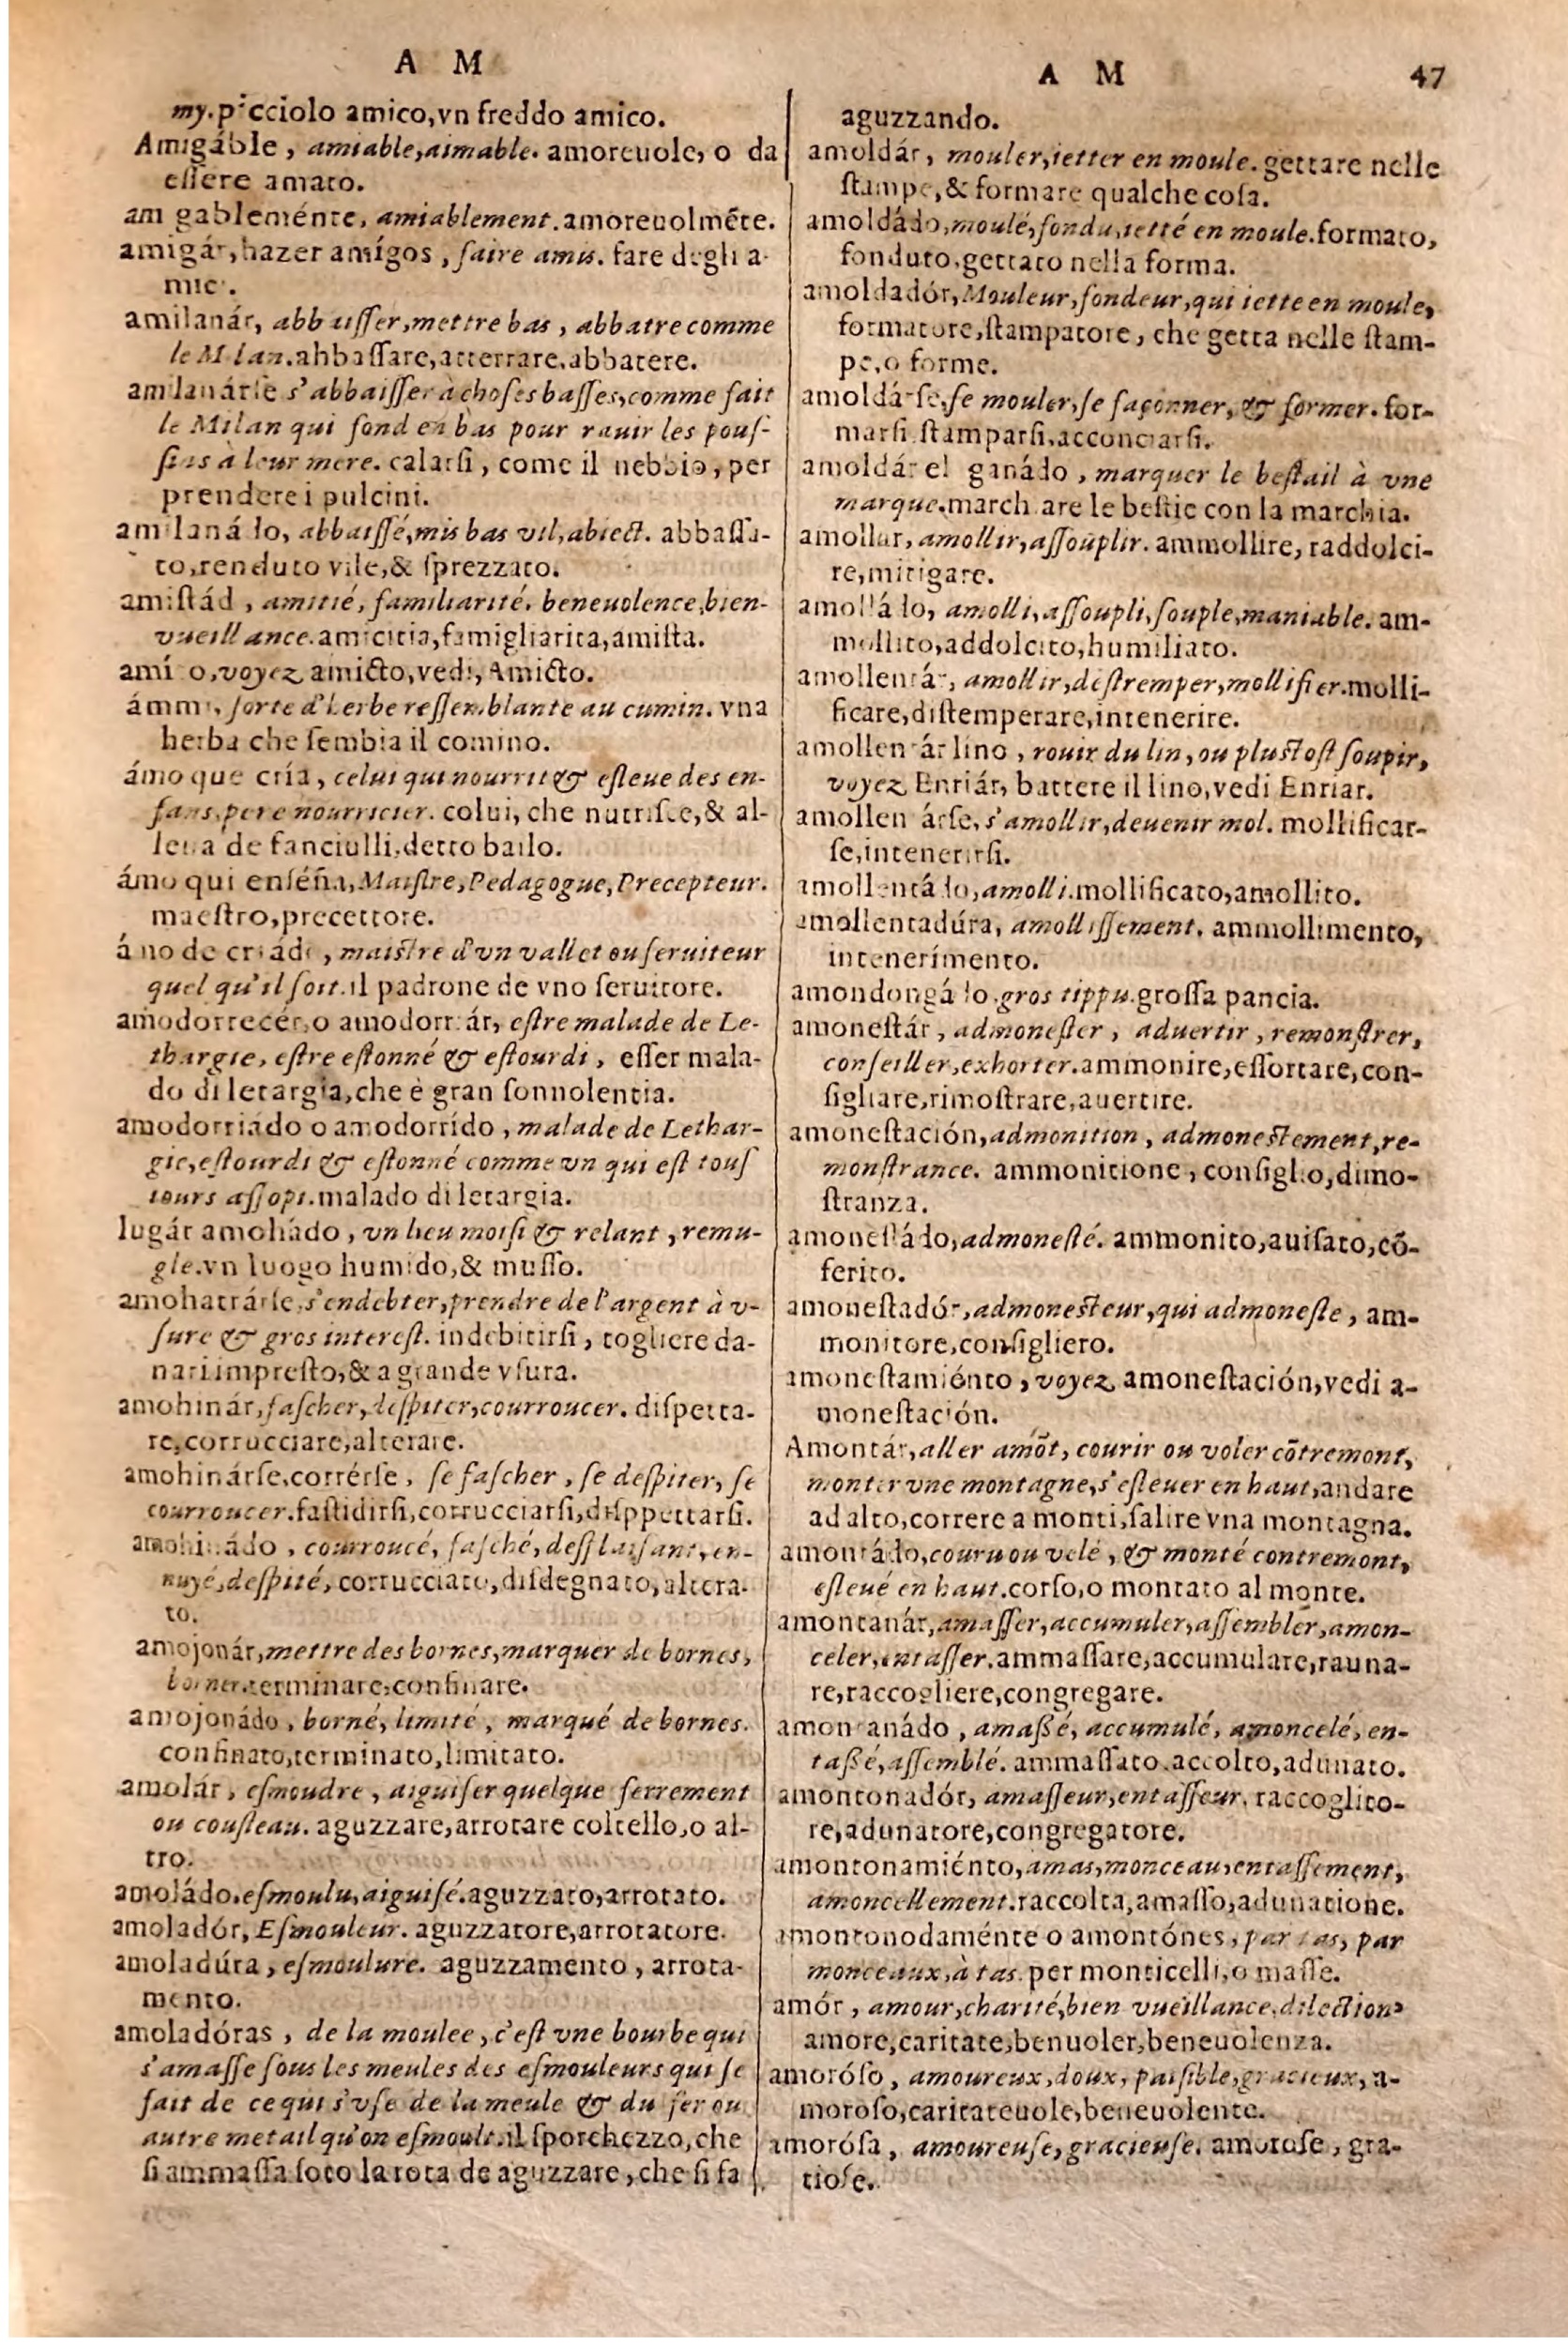 A M
my. picciolo amico,vn freddo amico.
Amigáble , amiable,aimable. amoreuole, o da
eſſere amato.
am gableménte, amiablement. amoreuolmẽte.
amigár, hazer amígos , faire amis. fare degli a-
mic .
amilanár, abb iſſer,mettre bas , abbatre comme
le M lan. abbaſſare,atterrare,abbatere.
amilanárſe s'abbaiſſer à choſes baſſes,comme fait
le Milan qui fond en bas pour rauir les pouſ-
ſins à leur mere. calarſi , come il nebbio, per
prendere i pulcini.
amilaná lo, abbaiſſé,mis bas vil,abiect. abbaſſa-
to,renduto vile,& ſprezzato.
amiſtád , amitié, familiarité, beneuolence,bien-
vueillance. amicitia,famigliarita,amiſta.
amí o,voyez amicto,vedi, Amicto.
ámm , ſorte d'herbe reſſemblante au cumin. vna
herba che ſembia il comino.
ámo que cría , celui qui nourrit & eſleue des en-
fans,pere nourricier. colui, che nutriſce,& al-
leua de fanciulli,detto bailo.
ámo qui enſéña,Maiſtre,Pedagogue,Precepteur.
maeſtro,precettore.
á no de criád , maiſtre d'vn vallet ou ſeruiteur
quel qu'il ſoit. il padrone de vno ſeruitore.
amodorrecér,o amodorrár, eſtre malade de Le-
thargie, eſtre eſtonné & eſtourdi , eſſer mala-
do di letargia,che è gran ſonnolentia.
amodorriádo o amodorrído , malade de Lethar-
gie,eſtourdi & eſtonné comme vn qui eſt touſ
iours aſſopi. malado di letargia.
lugár amohádo , vn lieu moiſi & relant , remu-
gle. vn luogo humido,& muſſo.
amohatrárſe,s'endebter,prendre de l'argent à v-
ſure & gros intereſt. indebitirſi , togliere da-
nari impreſto,& a grande vſura.
amohinár,faſcher,deſpiter,courroucer. diſpetta-
re,corrucciare,alterare.
amohinárſe,corrérſe , ſe faſcher , ſe deſpiter, ſe
courroucer. faſtidirſi,corrucciarſi,diſppettarſi.
amohinádo , courroucé, faſché, deſplaiſant, en-
nuyé,deſpité, corrucciato,diſdegnato,altera-
to.
amojonár,mettre des bornes,marquer de bornes,
borner. terminare,confinare.
amojonádo , borné, limité , marqué de bornes.
confinato,terminato,limitato.
amolár , eſmoudre , aiguiſer quelque ferrement
ou couſteau. aguzzare,arrotare coltello,o al-
tro.
amoládo,eſmoulu,aiguiſé. aguzzato,arrotato.
amoladór, Eſmouleur. aguzzatore,arrotatore.
amoladúra , eſmoulure. aguzzamento , arrota-
mento.
amoladóras , de la moulee , c'eſt vne bourbe qui
s'amaſſe ſous les meules des eſmouleurs qui ſe
fait de ce qui s'vſe de la meule & du fer ou
autre metail qu'on eſmoult. il ſporchezzo, che
ſi ammaſſa ſoto la rota de aguzzare , che ſi fa
A M 47
aguzzando.
amoldár , mouler,ietter en moule. gettare nelle
ſtampe,& formare qualche coſa.
amoldádo,moulé,fondu,ietté en moule. formato,
fonduto,gettato nella forma.
amoldadór,Mouleur,fondeur,qui iette en moule,
formatore,ſtampatore , che getta nelle ſtam-
pe,o forme.
amoldárſe,ſe mouler,ſe façonner, & former. for-
marſi,ſtamparſi,acconciarſi.
amoldár el ganádo , marquer le beſtail à vne
marque. march are le beſtie con la marchia.
amollar, amollir,aſſouplir. ammollire, raddolci-
re,mitigare.
amollá lo, amolli,aſſoupli,ſouple,maniable. am-
mollito,addolcito,humiliato.
amollentár, amollir,deſtremper,mollifier. molli-
ficare,diſtemperare,intenerire.
amollen ár líno , rouir du lin, ou pluſtoſt ſoupir,
voyez Enriár, battere il lino,vedi Enriar.
amollen árſe, s'amollir,deuenir mol. mollificar-
ſe,intenerirſi.
amollentá lo,amolli. mollificato,amollito.
amollentadúra, amolliſſement. ammollimento,
intenerímento.
amondongá lo.gros tippu. groſſa pancia.
amoneſtár , admoneſter , aduertir , remonſtrer,
conſeiller,exhorter. ammonire,eſſortare,con-
ſigliare,rimoſtrare,auertire.
amoneſtación,admonition , admoneſtement,re-
monſtrance. ammonitione , conſiglio,dimo-
ſtranza.
amoneſtá lo,admoneſté. ammonito,auiſato,cõ-
ferito.
amoneſtadór,admoneſteur,qui admoneſte , am-
monitore,conſigliero.
amoneſtamiénto , voyez amoneſtación,vedi a-
moneſtación.
Amontár,aller amõt, courir ou voler cõtremont,
monter vne montagne,s'eſleuer en haut,andare
ad alto,correre a monti,ſalire vna montagna.
amontádo,couru ou volé , & monté contremont,
eſleué en haut. corſo,o montato al monte.
amontanár,amaſſer,accumuler,aſſembler,amon-
celer,entaſſer. ammaſſare,accumulare,rauna-
re,raccogliere,congregare.
amon anádo , amaßé, accumulé, amoncelé, en-
taßé,aſſemblé. ammaſſato,accolto,adunato.
amontonadór, amaſſeur,entaſſeur. raccoglito-
re,adunatore,congregatore.
amontonamiénto,amas,monceau,entaſſement,
amoncellement. raccolta,amaſſo,adunatione.
amontonodaménte o amontónes, par tas, par
monceaux,à tas. per monticelli,o maſſe.
amór , amour,charité,bien vueillance,dilection,
amore,caritate,benuoler,beneuolenza.
amoróſo , amoureux,doux, paiſible,gracieux, a-
moroſo,caritateuole,beneuolente.
amoróſa , amoureuſe,gracieuſe. amoroſe , gra-
tioſe.